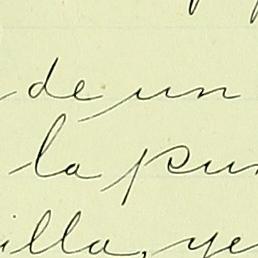 de un
la pun
illa, ye